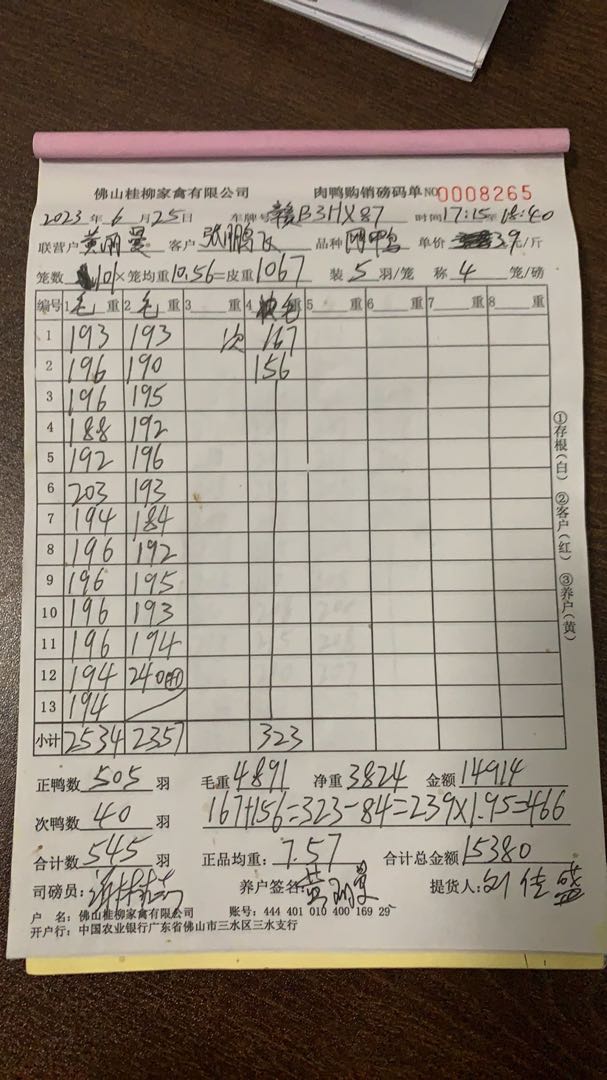 佛山桂柳家禽有限公司 肉鸭购销磅码单 NO 0008265
2023年6月25日 车牌号 赣B3HX87 时间 17:15至18:40
联营户 黄丽曼 客户 张鹏飞 品种 单价 3.9元/斤
笼数 101×笼均重10.56=皮重1067 装5羽/笼 称4笼/磅
编号 1毛重 2毛重 3重 4 毛重 5重 6重 7重 8重
1 193 193 次 167
2 196 190 156
3 196 195
4 188 192
5 192 196
6 203 193
7 194 184
8 196 192
9 196 195
10 196 193
11 196 194
12 194 240
13 194
小计 2534 2357 323
正鸭数 505 羽 毛重 4891 净重 3824 金额 14914
次鸭数 40 羽 167+156=323-84=239×1.95=466
合计数 545 羽 正品均重: 7.57 合计总金额 15380
司磅员: 养户签名 黄丽曼 提货人: 刘佳盛
户 名: 佛山桂柳家禽有限公司 账号: 444 401 010 400 169 29
开户行: 中国农业银行广东省佛山市三水区三水支行
①存根(白) ②客户(红) ③养户(黄)